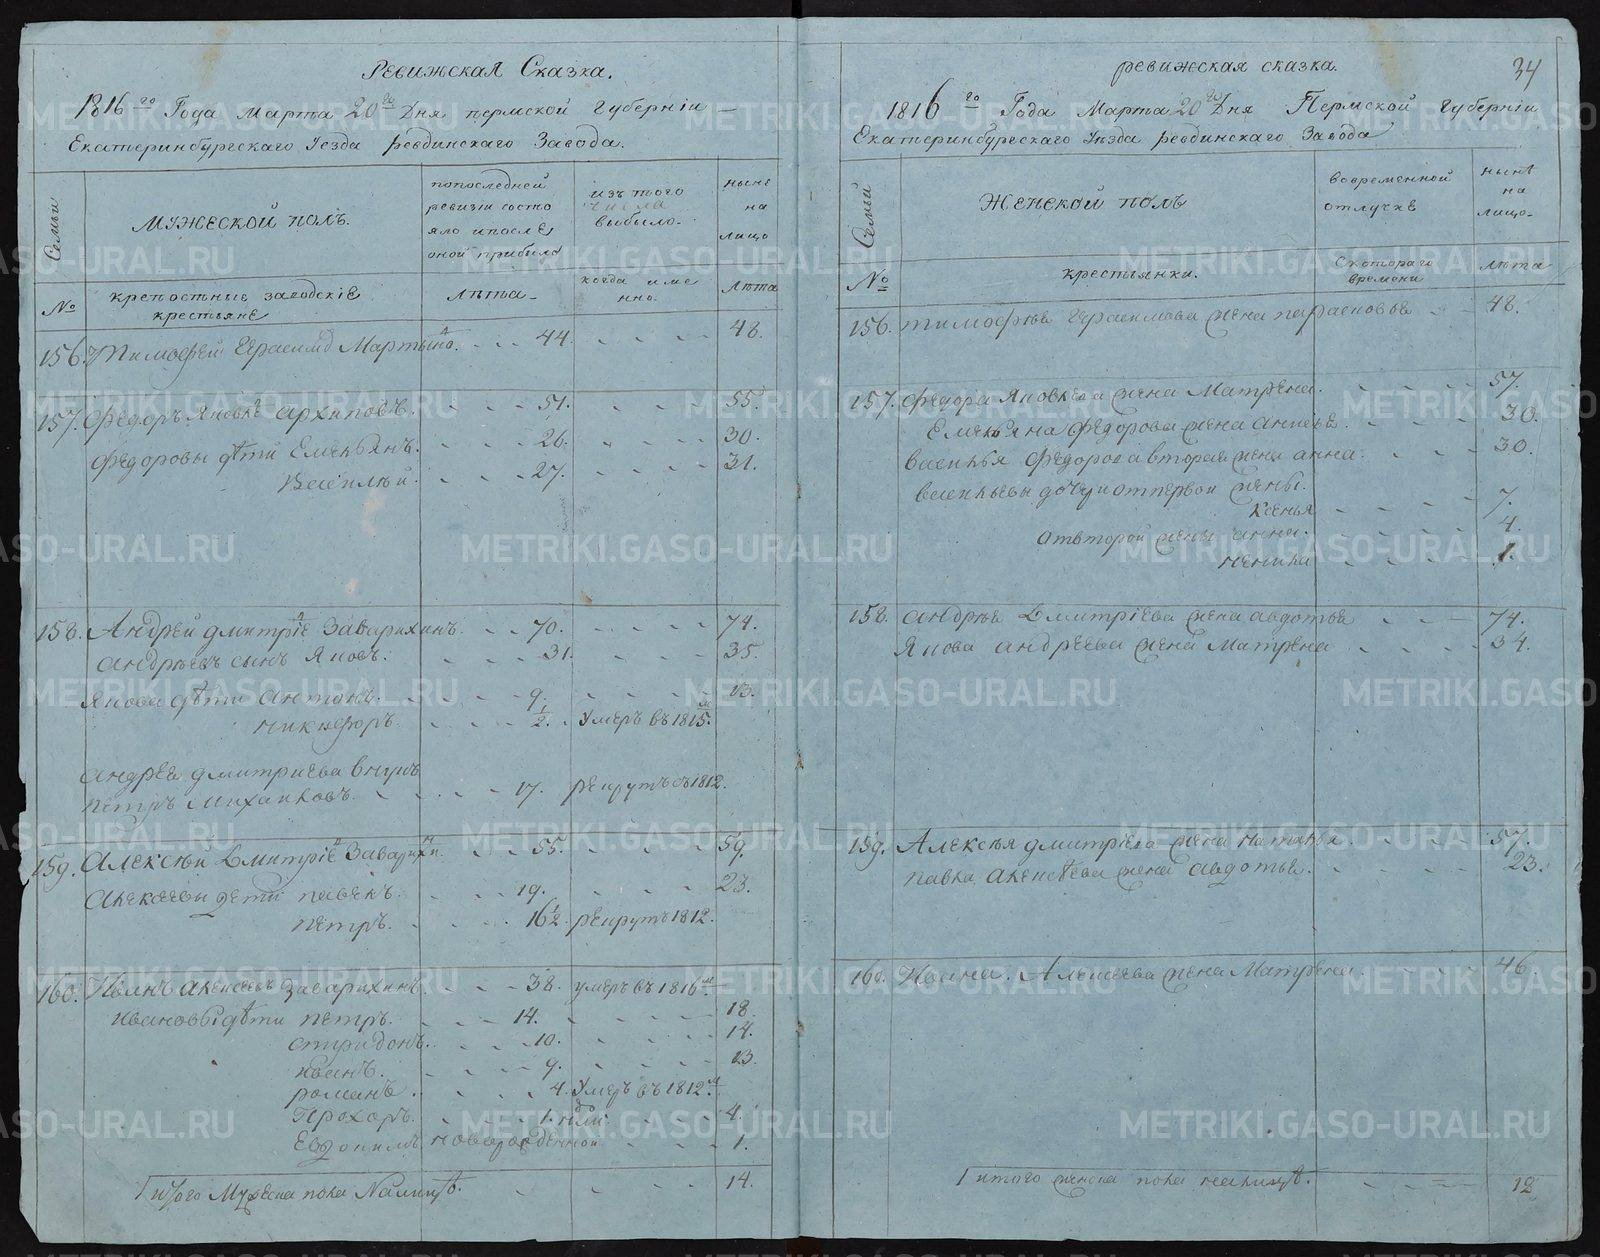 Ревижская Сказка.
1816го Года марта 20го Дня пермской Губерніи
Екатеринбургскаго Уезда ревдинскаго Завода.
Семьи
мужеской полъ.
попоследней
ревизи состо
яло ипосле
оной прибыло
изъ того
числа
выбыло
ныне
на
лицо
№
крепостные заводскіе
крестьяне
лѣта
когда име
нно
лѣта
156. Тимофей Герасимо Мартыно. 44. 48.
157. Федоръ Яковле архиповъ. 51. 55.
Федоровы дѣти Емельянъ. 26. 30.
Василѣй. 27. 31.
158. Андрей дмитріе Заварихинъ. 70. 74.
андрѣевъ сынъ Яковъ. 31. 35.
Якова дѣти антонъ. 9. 13.
никифоръ. 1/2. Умеръ въ 1815м.
андрея дмитриева внукъ
петръ михаиловъ. 17. рекрутъ въ 1812.
159. Алексѣй Дмитріе Заварихи. 55. 59.
алексеевы дети павелъ. 19. 23.
петръ. 16 1/2 рекрутъ 1812.
160. Иванъ алексеевъ Заварихинъ. 38. умеръ въ 1816м
ивановы дѣти петръ. 14. 18.
спиридонъ. 10. 14.
иванъ. 9. 13.
романъ. 4. Умеръ въ 1812м
Прохоръ. 1. 4.
Евдокимъ новорожденной 1.
итого Мужеска пола Налицѣ. 14.
ревижская сказка.
34
1816го Года Марта 20го Дня Пермской Губерніи
Екатеринбургскаго Уѣзда ревдинскаго Завода
Семьи
Женской полъ
вовременной
отлучке
нынѣ
на
лицо
№
крестьянки.
Скотораго
времени
лѣта
156. тимофѣя Герасимова жена парасковья 48.
157. федора Яковлева жена Матрена. 57.
Емельяна федорова жена анисья. 30.
василья федорова вторая жена анна. 30.
васильевы дочери отпервой жены.
Ксенья 7.
отвторой жены анна. 4.
1.
158. андрѣя Дмитріева жена авдотья 74.
Якова андреева жена матрена 34.
159. Алексѣя дмитріева жена наталья. 57.
павла алексѣева жена авдотья. 23.
160. Ивана Алексеева жена Матрена. 46.
итого женска пола налицѣ. 12
METRIKI.GASO-URAL.RU